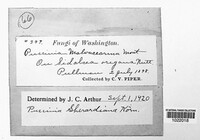 66
Fungi of Washington.
Puccinia Malvacearum Mont
On Sidalcea oregana Nutt
Pullman 2 July 1898.
Collected by C. V. PIPER.
Determined by J. C. Arthur Sept. 1, 1920
Puccinia Sherardiana Körn.